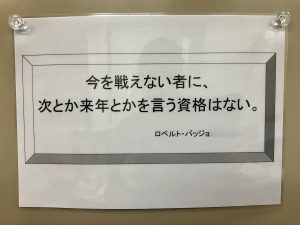 今を戦えない者に、
次とか来年とかを言う資格はない。
ロベルト・バッジョ